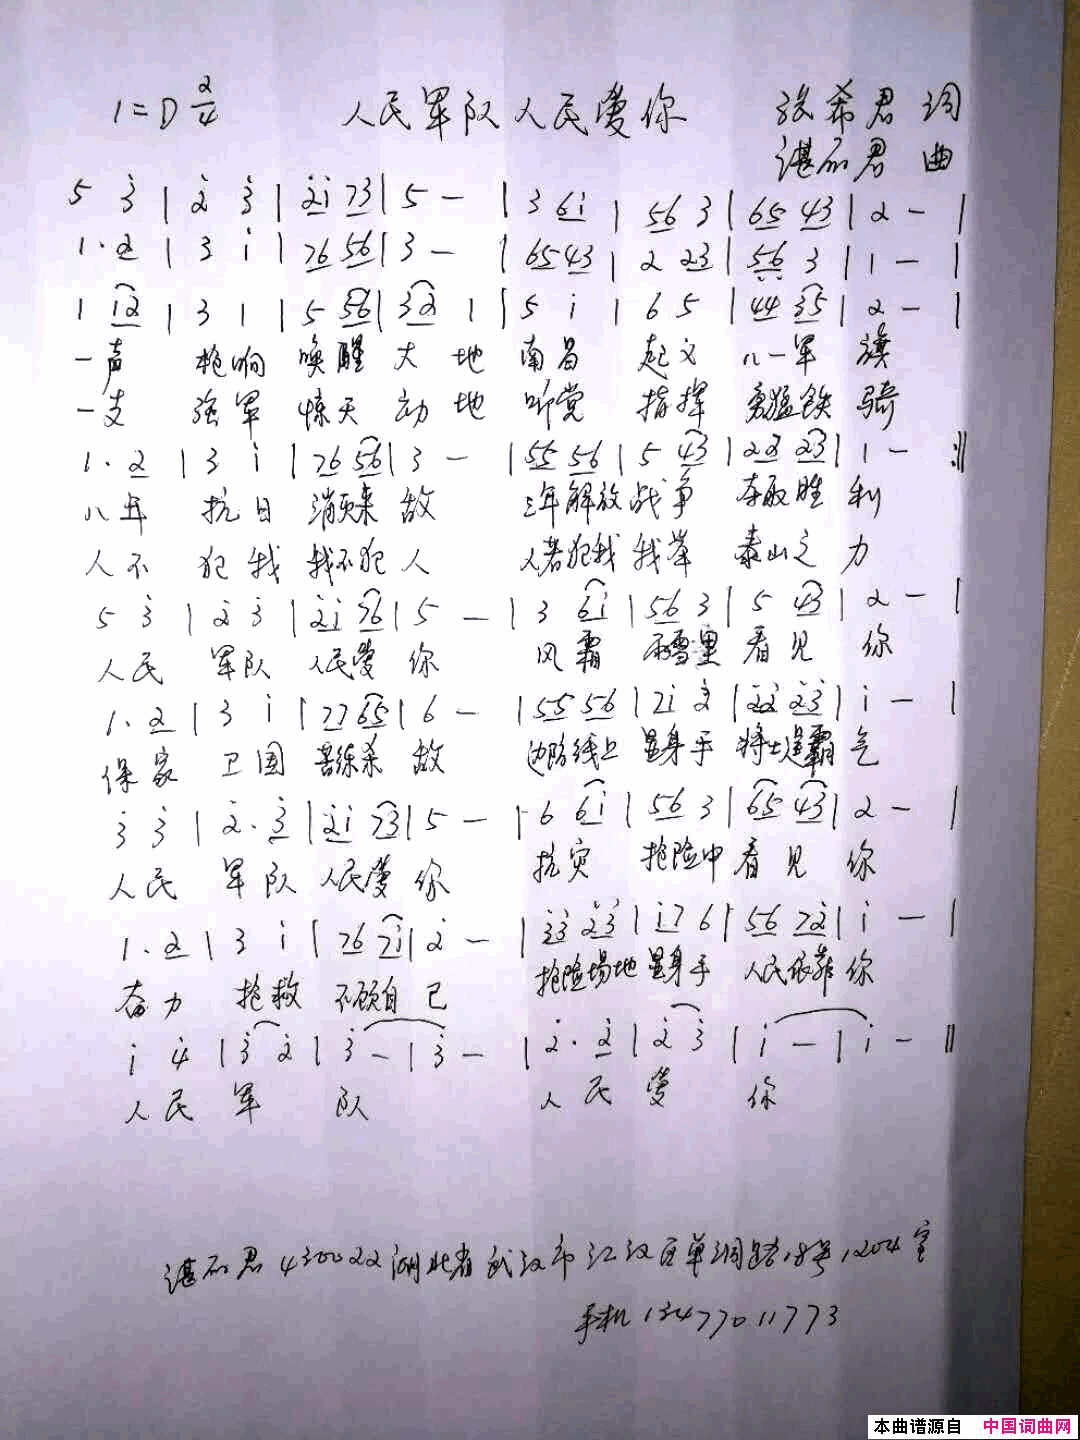 1=D 2/4 人民军队人民爱你 张希君 词
谌丽君 曲
5 3̇ | 2̇ 3̇ | 2̇i 73̇ | 5 — | 3 6i | 56 3 | 65 43 | 2 — |
1· 2 | 3 i | 76 56 | 3 — | 65 43 | 2 23 | 56 3 | 1 — |
1 12 | 3 1 | 5 56 | 32 1 | 5 i | 6 5 | 44 35 | 2 — |
一声 枪响 唤醒 大地 南昌 起义 八一军 旗
一支 强军 惊天 动地 听党 指挥 勇猛铁 骑
1· 2 | 3 i | 76 56 | 3 — | 55 56 | 5 43 | 22 23 | 1 — :||
八年 抗日 消灭来敌 三年解放战争 夺取胜利
人不 犯我 我不犯人 人若犯我 我举 泰山之力
5 3̇ | 2̇ 3̇ | 2̇i 76 | 5 — | 3 6i | 56 3 | 5 43 | 2 — |
人民 军队 人民爱你 风霜 雨雪里 看见 你
1· 2 | 3 i | 77 65 | 6 — | 55 56 | 7i 2̇ | 2̇2̇ 2̇3̇ | i — |
保家 卫国 苦练杀敌 边防线上 显身手 将士逞霸气
3̇ 3̇ | 2̇· 3̇ | 2̇i 73̇ | 5 — | 6 6i | 56 3 | 65 43 | 2 — |
人民 军队 人民爱你 抗灾 抢险中 看见 你
1· 2 | 3 i | 76 7i | 2̇ — | 3̇3̇ 2̇3̇ | i7 6 | 56 72̇ | i — |
奋力 抢救 不顾自己 抢险场地 显身手 人民依靠你
i 4̇ | 3̇ 2̇ | 3̇ — | 3̇ — | 2̇· 2̇ | 2̇ 3̇ | i — | i — ||
人民 军 队 人民 爱 你
谌丽君 430022 湖北省武汉市江汉区单洞路18号1204室
手机 13477011773
本曲谱源自 中国词曲网